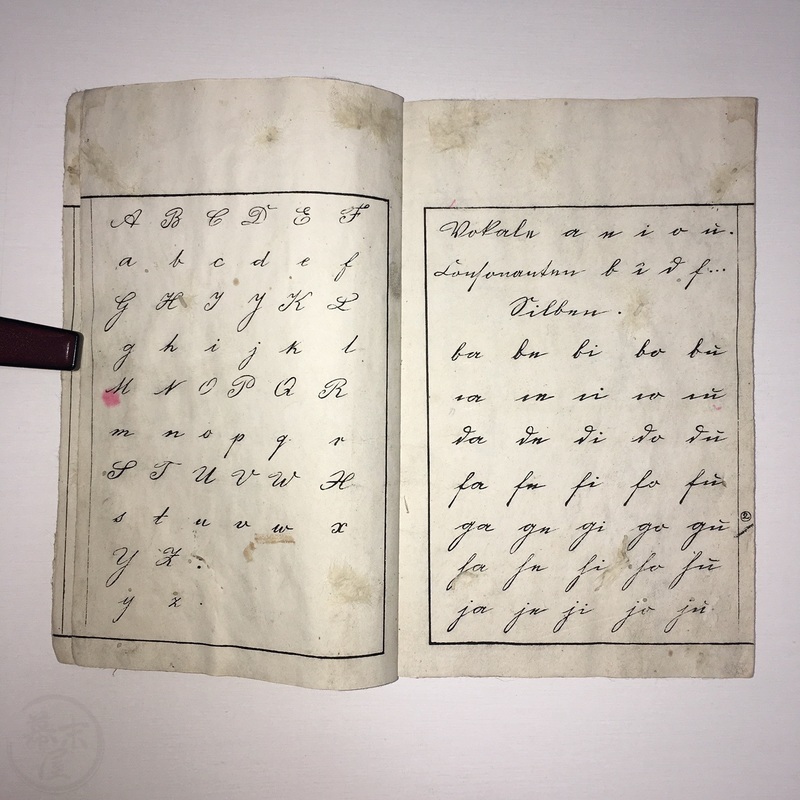 A B C D E F
a b c d e f
G H I J K L
g h i j k l
M N O P Q R
m n o p q r
S T U V W X
s t u v w x
Y Z .
y z .
Vokale a e i o u.
Consonanten b c d f...
Silben.
ba be bi bo bu
ca ce ci co cu
da de di do du
fa fe fi fo fu
ga ge gi go gu
②
ha he hi ho hu
ja je ji jo ju